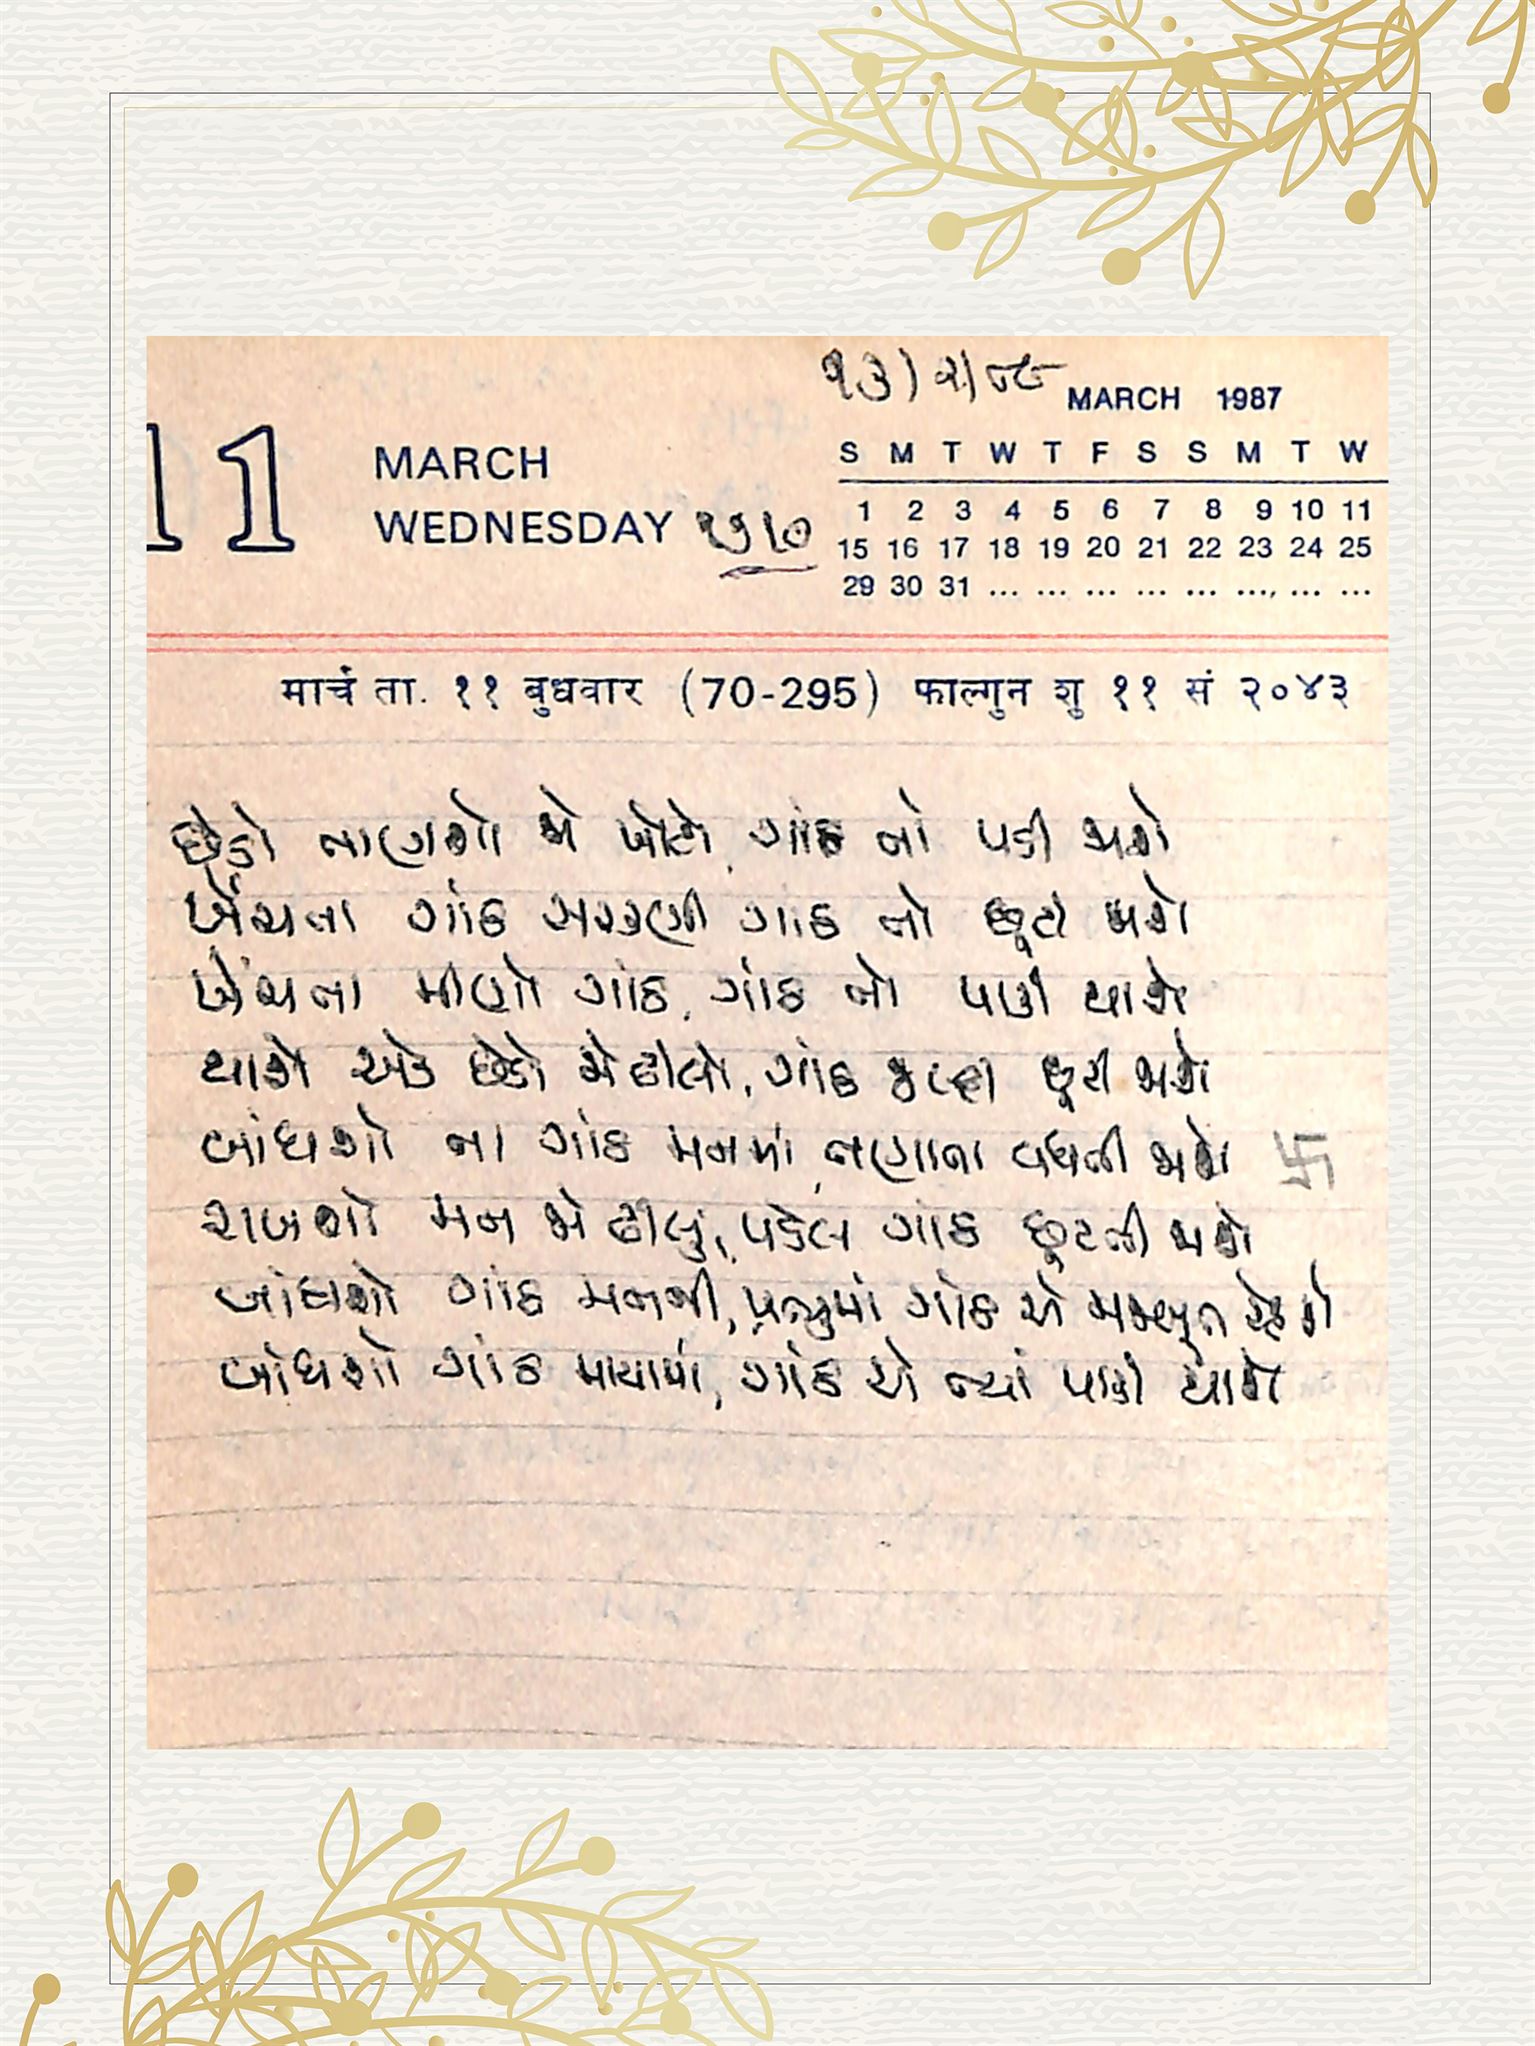 ૧૩) ૨/૮૮
MARCH 1987
11
MARCH
WEDNESDAY
S M T W T F S S M T W
1 2 3 4 5 6 7 8 9 10 11
15 16 17 18 19 20 21 22 23 24 25
29 30 31 ... ... ... ... ... ..., ... ...
मार्च ता. ११ बुधवार (70-295) फाल्गुन शु ११ सं २०४३
છેડો તાણશો જે ખોટો, ગાંઠ તો પડી જાશે
ખેંચતા ગાંઠ સરકણી ગાંઠ તો છૂટી જાશે
ખેંચતા મીણો ગાંઠ, ગાંઠ તો પાકી થાશે
થાશે એક છેડો જે ઢીલો, ગાંઠ જલ્દી છૂટી જાશે
બાંધશો ના ગાંઠ મનમાં, તણાતા વધતી જાશે
રાખશો મન જે ઢીલું, પડેલ ગાંઠ છૂટતી જાશે
બાંધશો ગાંઠ મનની, પ્રભુમાં ગાંઠ એ મજબૂત રહેશે
બાંધશો ગાંઠ માયામાં, ગાંઠ એ ત્યાં પાકી થાશે